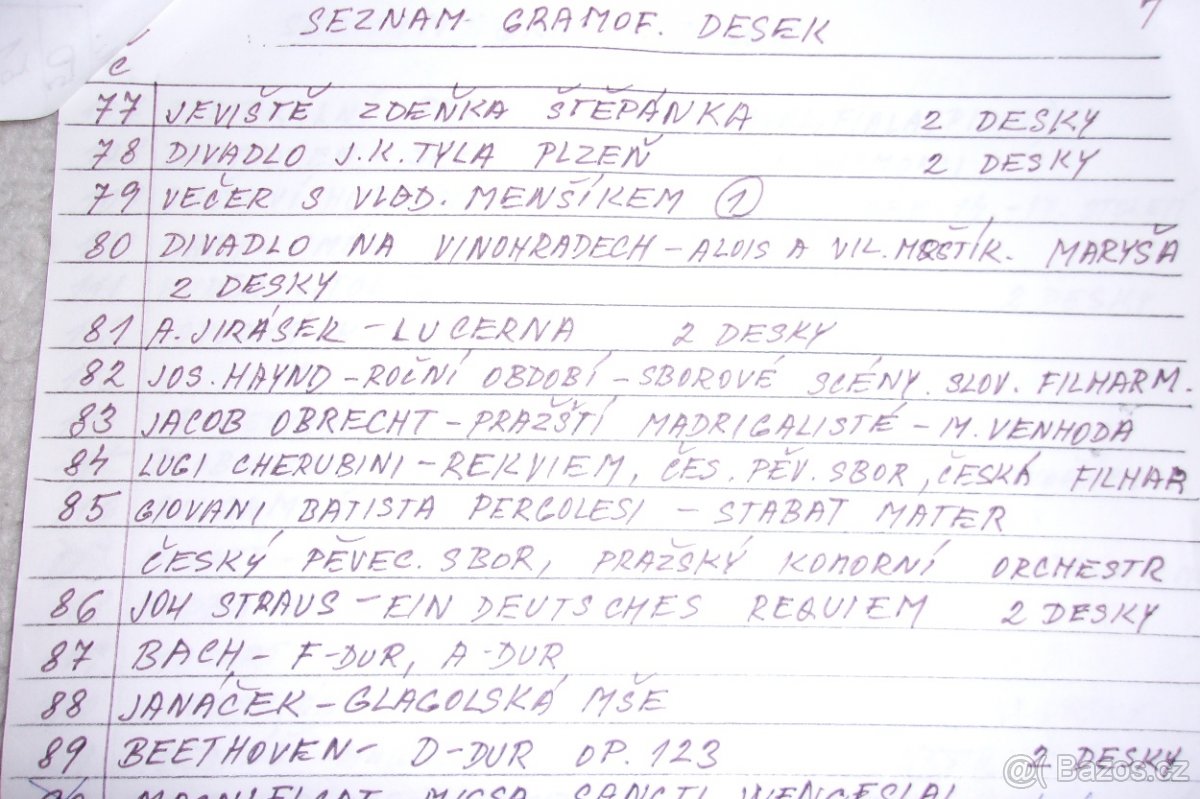 SEZNAM GRAMOF. DESEK 7
Č
77 JEVIŠTĚ ZDEŇKA ŠTĚPÁNKA 2 DESKY
78 DIVADLO J.K. TYLA PLZEŇ 2 DESKY
79 VEČER S VLAD. MENŠÍKEM 1
80 DIVADLO NA VINOHRADECH - ALOIS A VIL. MRŠTÍK. MARYŠA
2 DESKY
81 A. JIRÁSEK - LUCERNA 2 DESKY
82 JOS. HAYND - ROČNÍ OBDOBÍ - SBOROVÉ SCÉNY. SLOV. FILHARM.
83 JACOB OBRECHT - PRAŽŠTÍ MADRIGALISTÉ - M. VENHODA
84 LUGI CHERUBINI - REKVIEM, ČES. PĚV. SBOR, ČESKÁ FILHAR
85 GIOVANI BATISTA PERGOLESI - STABAT MATER
ČESKÝ PĚVEC. SBOR, PRAŽSKÝ KOMORNÍ ORCHESTR
86 JOH STRAUS - EIN DEUTSCHES REQUIEM 2 DESKY
87 BACH - F-DUR, A-DUR
88 JANÁČEK - GLAGOLSKÁ MŠE
89 BEETHOVEN - D-DUR OP. 123 2 DESKY
MISSA SANCTI WENCESLAI
@ Bazoš.cz